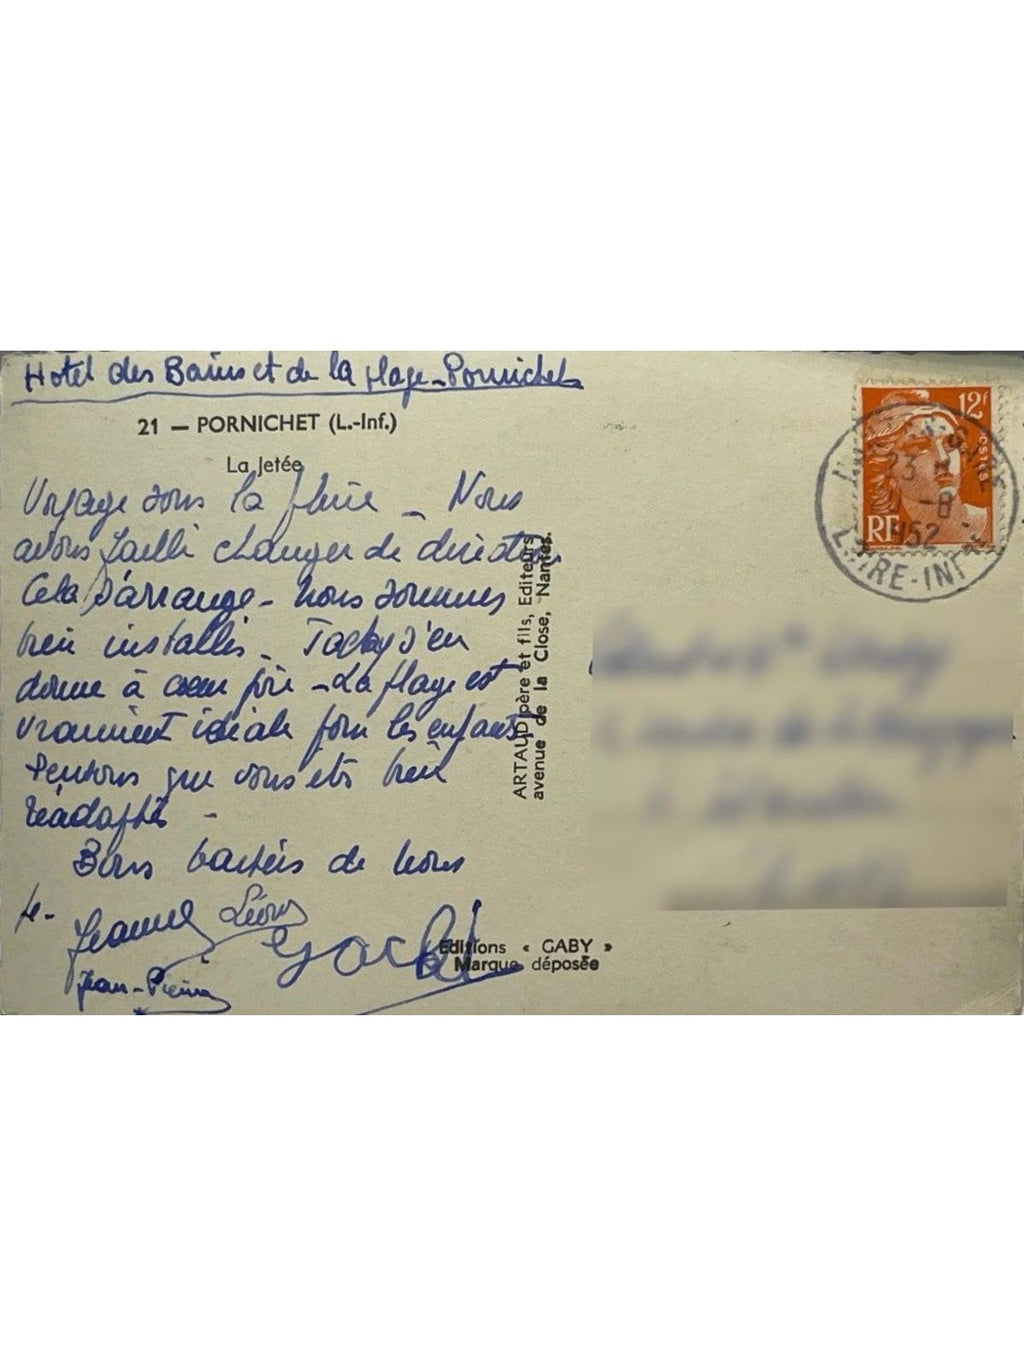 Hotel des Bains et de la Plage - Pornichet
21 — PORNICHET (L.-Inf.)
La Jetée
Voyage sous la pluie - Nous
avons failli changer de direction
Cela s'arrange - Nous sommes
bien installés - Jacky s'en
donne à cœur joie - La plage est
vraiment idéale pour les enfants
Pensons que vous êtes bien
réadaptés -
Bons baisers de nous
4 -
Jeanne Léon
Jean-Pierre
ARTAUD père et fils, Editeurs
avenue de la Close, Nantes.
Editions « GABY »
Marque déposée
12F
POSTES
RF
23
-8
1952
LOIRE-INFRE